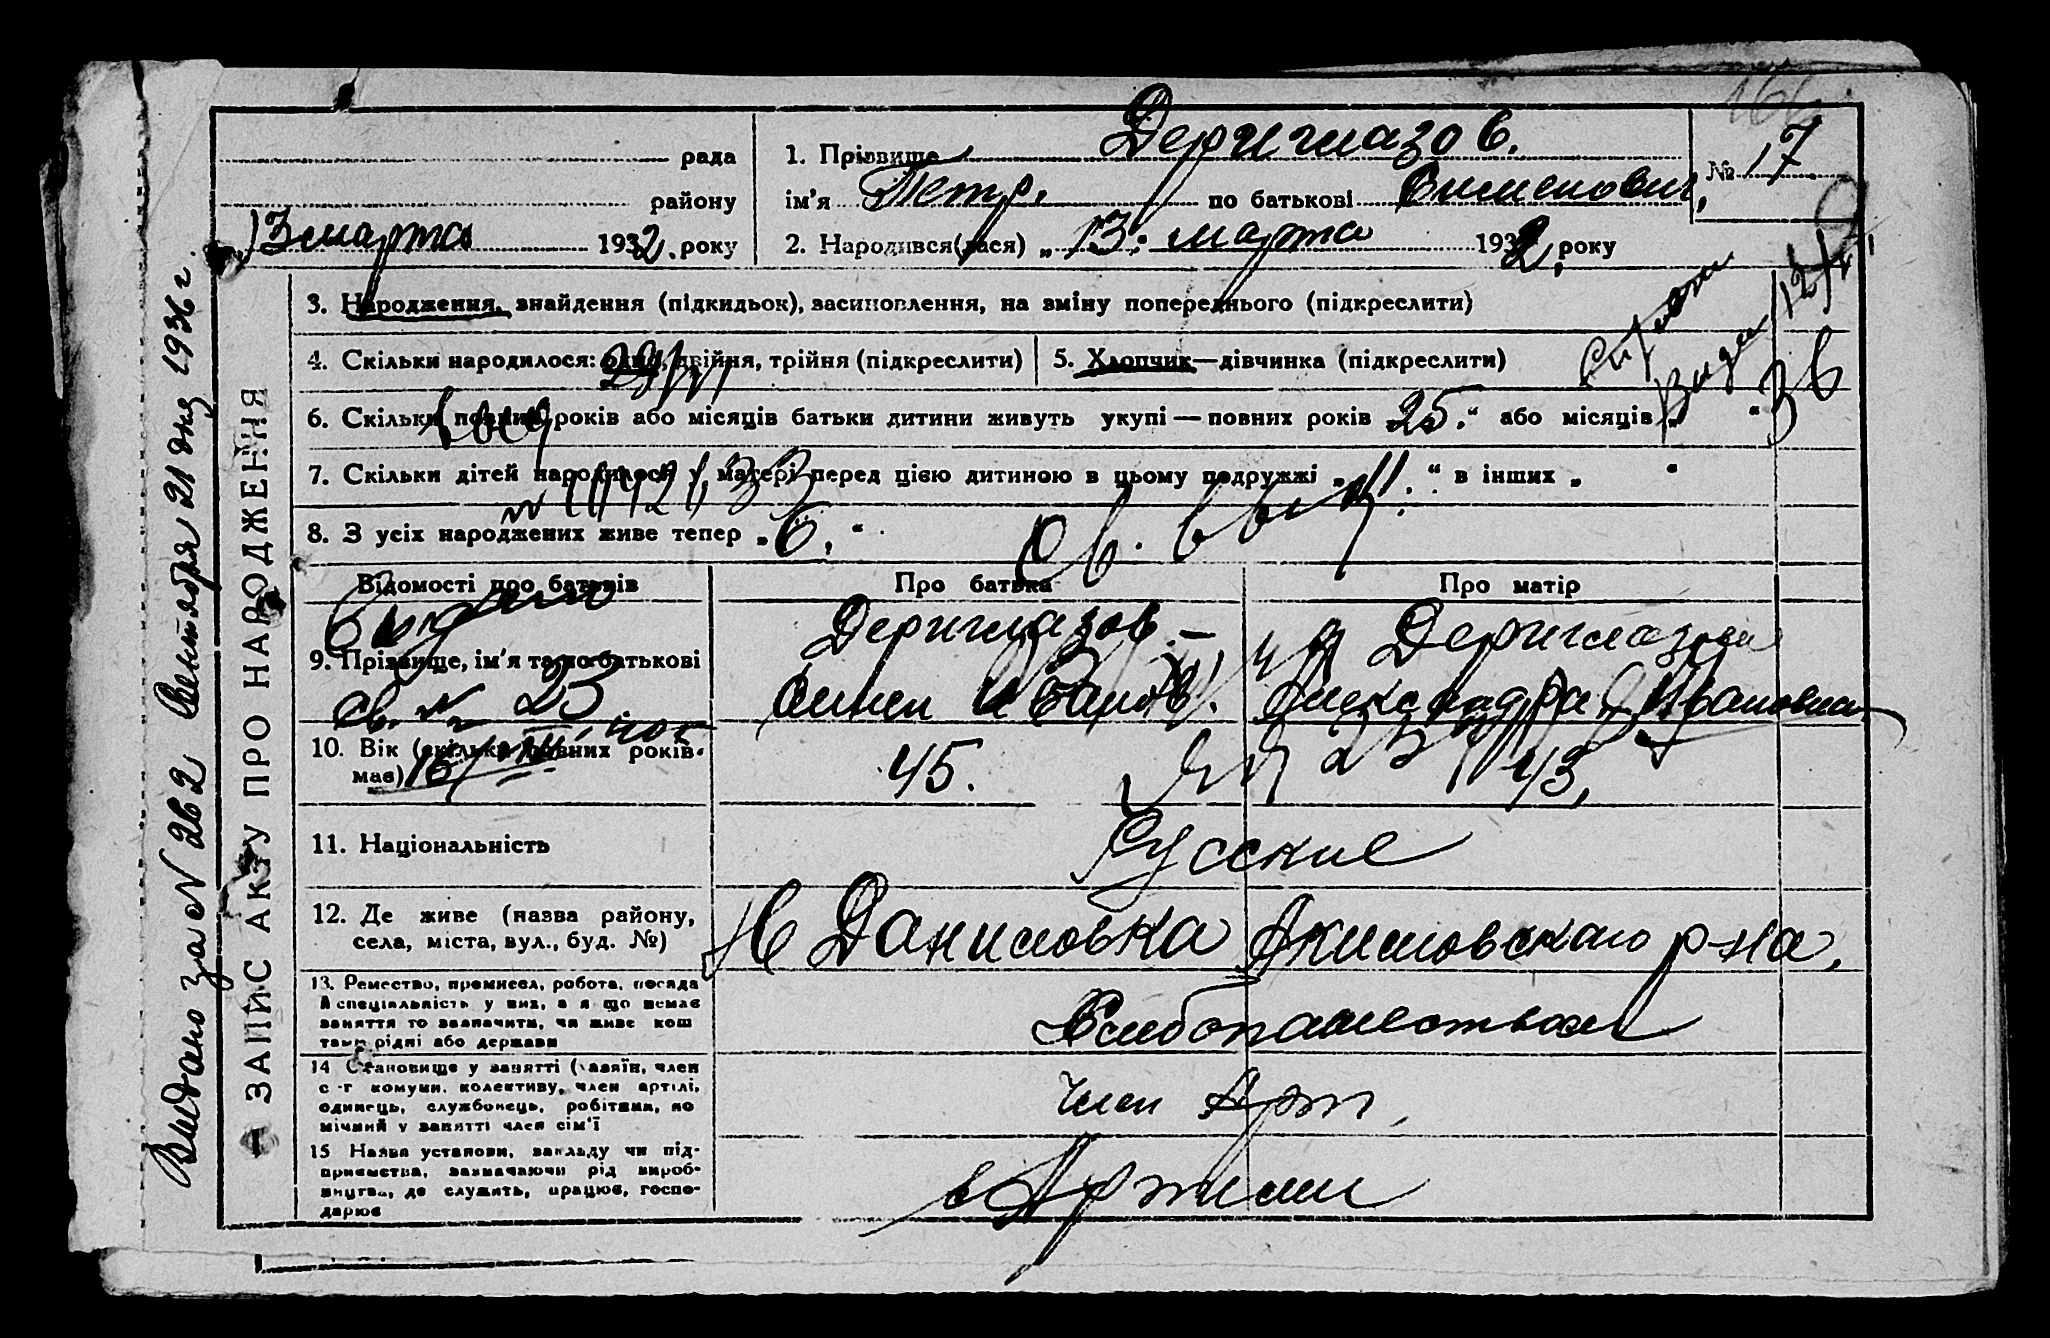 рада
1. Прізвище Деригмазов.
№ 17
району
ім'я Петр. по батькові
13 марта 1932. року
2. Народився(лася) „13." марта 1932, року
3. Народження, знайдення (підкидьок), засиновлення, на зміну попереднього (підкреслити)
4. Скільки народилося: одно, двійня, трійня (підкреслити)
5. Хлопчик—дівчинка (підкреслити)
6. Скільки повних років або місяців батьки дитини живуть укупі—повних років „25." або місяців „ "
36
7. Скільки дітей народилося у матері перед цією дитиною в цьому подружжі „11." в інших „ "
8. З усіх народжених живе тепер „6,"
Відомості про батьків
Про батька
Про матір
9. Прізвище, ім'я та по батькові
Деригмазов
Деригмазова
Александра Ивановна
10. Вік (скільки повних років має)
45.
43,
11. Національність
Русские
12. Де живе (назва району,
села, міста, вул., буд. №)
Н Даниловка Акимовского р-на,
13. Ремество, промисел, робота, посада
й спеціяльність у них, а як що немає
заняття то зазначити, чи живе кош
тами рідні або держави
14 Становище у занятті (хазяїн, член
с-г комуни, колективу, член артілі,
одинець, службовець, робітник, по
мічний у занятті член сім'ї
член Арт,
15 Назва установи, закладу чи під-
приємства, зазначаючи рід вироб-
ництва, де служить, працює, госпо-
дарює
в Артели
ЗАПИС АКТУ ПРО НАРОДЖЕННЯ
Выдано за N 262 Сентября 21 дня 1936 г.